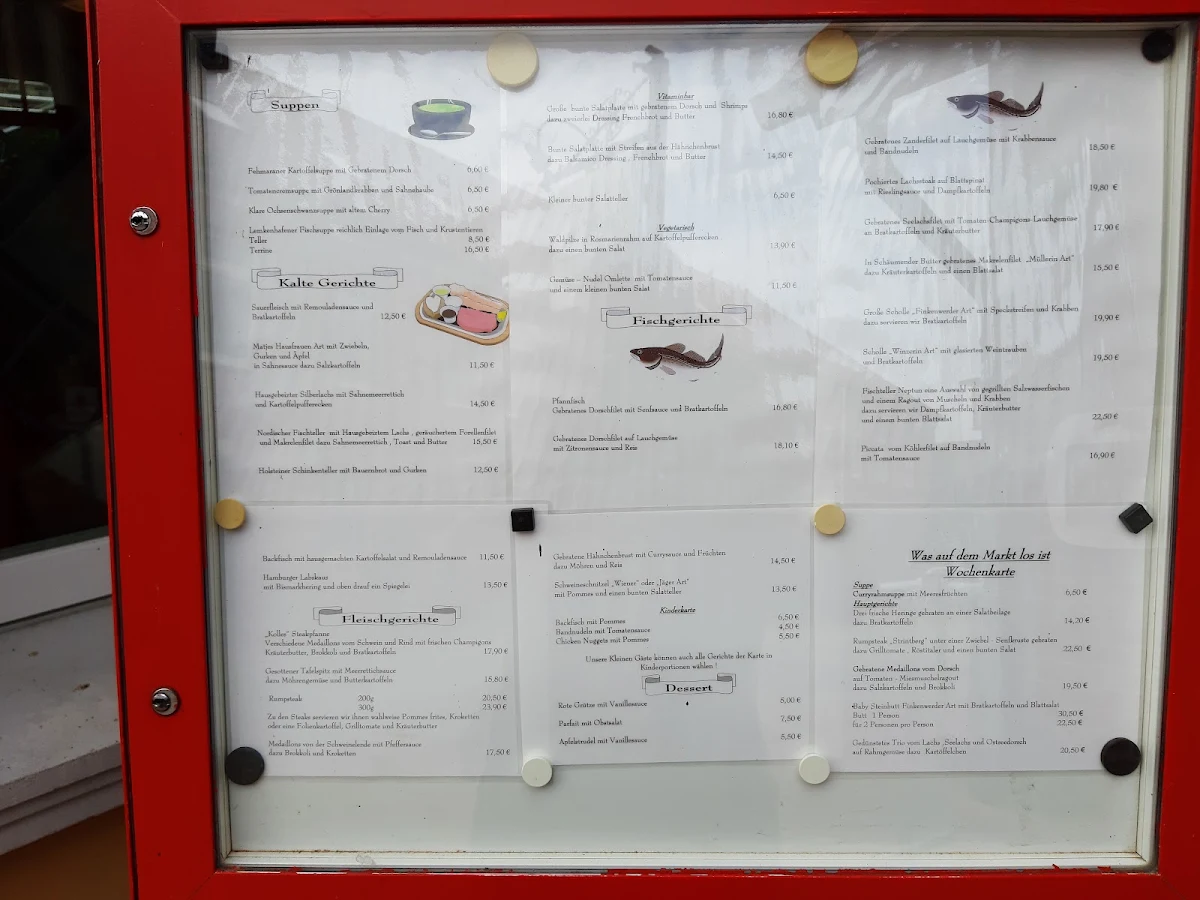 Suppen
Fehmaraner Kartoffelsuppe mit Gebratenem Dorsch 6,60 €
Tomatencremsuppe mit Grönlandkrabben und Sahnehaube 6,50 €
Klare Ochsenschwanzsuppe mit altem Cherry 6,50 €
Lemkenhafener Fischsuppe reichlich Einlage vom Fisch und Krustentieren
Teller 8,50 €
Terrine 16,50 €
Kalte Gerichte
Sauerfleisch mit Remouladensauce und
Bratkartoffeln 12,50 €
Matjes Hausfrauen Art mit Zwiebeln,
Gurken und Äpfel
in Sahnesauce dazu Salzkartoffeln 11,50 €
Hausgebeizter Silberlachs mit Sahnemeerrettich
und Kartoffelpufferecken 14,50 €
Nordischer Fischteller mit Hausgebeiztem Lachs , geräuchertem Forellenfilet
und Makrelenfilet dazu Sahnemeerrettich , Toast und Butter 15,50 €
Holsteiner Schinkenteller mit Bauernbrot und Gurken 12,50 €
Vitaminbar
Große bunte Salatplatte mit gebratenem Dorsch und Shrimps
dazu zweierlei Dressing Frenchbrot und Butter 16,80 €
Bunte Salatplatte mit Streifen aus der Hähnchenbrust
dazu Balsamico Dressing , Frenchbrot und Butter 14,50 €
Kleiner bunter Salatteller 6,50 €
Vegetarisch
Waldpilze in Rosmarinrahm auf Kartoffelpufferecken
dazu einen bunten Salat 13,90 €
Gemüse – Nudel Omlette mit Tomatensauce
und einem kleinen bunten Salat 11,50 €
Fischgerichte
Pfannfisch
Gebratenes Dorschfilet mit Senfsauce und Bratkartoffeln 16,80 €
Gebratenes Dorschfilet auf Lauchgemüse
mit Zitronensauce und Reis 18,10 €
Gebratenes Zanderfilet auf Lauchgemüse mit Krabbensauce
und Bandnudeln 18,50 €
Pochiertes Lachssteak auf Blattspinat
mit Rieslingsauce und Dampfkartoffeln 19,80 €
Gebratenes Seelachsfilet mit Tomaten-Champignos-Lauchgemüse
an Bratkartoffeln und Kräuterbutter 17,90 €
In Schäumender Butter gebratenes Makrelenfilet „Müllerin Art"
dazu Kräuterkartoffeln und einen Blattsalat 15,50 €
Große Scholle „Finkenwerder Art" mit Speckstreifen und Krabben
dazu servieren wir Bratkartoffeln 19,90 €
Scholle „Winzerin Art" mit glasierten Weintrauben
und Bratkartoffeln 19,50 €
Fischteller Neptun eine Auswahl von gegrillten Salzwasserfischen
und einem Ragout von Muscheln und Krabben
dazu servieren wir Dampfkartoffeln, Kräuterbutter
und einem bunten Blattsalat 22,50 €
Piccata vom Köhlerfilet auf Bandnudeln
mit Tomatensauce 16,90 €
Backfisch mit hausgemachten Kartoffelsalat und Remouladensauce 11,50 €
Hamburger Labskaus
mit Bismarkhering und oben drauf ein Spiegelei 13,50 €
Fleischgerichte
„Kollee" Steakpfanne
Verschiedene Medaillons vom Schwein und Rind mit frischen Champigons
Kräuterbutter, Brokkoli und Bratkartoffeln 17,90 €
Gesottener Tafelspitz mit Meerrettichsauce
dazu Möhrengemüse und Butterkartoffeln 15,80 €
Rumpsteak 200g 20,50 €
300g 23,90 €
Zu den Steaks servieren wir ihnen wahlweise Pommes frites, Kroketten
oder eine Folienkartoffel, Grilltomate und Kräuterbutter
Medaillons von der Schweinelende mit Pfeffersauce
dazu Brokkoli und Kroketten 17,50 €
Gebratene Hähnchenbrust mit Currysauce und Früchten
dazu Möhren und Reis 14,50 €
Schweineschnitzel „Wiener" oder „Jäger Art"
mit Pommes und einen bunten Salatteller 13,50 €
Kinderkarte
Backfisch mit Pommes 6,50 €
Bandnudeln mit Tomatensauce 4,50 €
Chicken Nuggets mit Pommes 5,50 €
Unsere Kleinen Gäste können auch alle Gerichte der Karte in
Kinderportionen wählen !
Dessert
Rote Grütze mit Vanillesauce 5,00 €
Parfait mit Obstsalat 7,50 €
Apfelstrudel mit Vanillesauce 5,50 €
Was auf dem Markt los ist
Wochenkarte
Suppe
Curryrahmsuppe mit Meeresfrüchten 6,50 €
Hauptgerichte
Drei frische Heringe gebraten an einer Salatbeilage
dazu Bratkartoffeln 14,20 €
Rumpsteak „Strintberg" unter einer Zwiebel - Senfkruste gebraten
dazu Grilltomate , Röstitaler und einen bunten Salat 22,50 €
Gebratene Medaillons vom Dorsch
auf Tomaten - Miesmuschelragout
dazu Salzkartoffeln und Brokkoli 19,50 €
Baby Steinbutt Finkenwerder Art mit Bratkartoffeln und Blattsalat
Butt 1 Person 30,50 €
für 2 Personen pro Person 22,50 €
Gedünstetes Trio vom Lachs ,Seelachs und Ostseedorsch
auf Rahmgemüse dazu Kartöffelchen 20,50 €